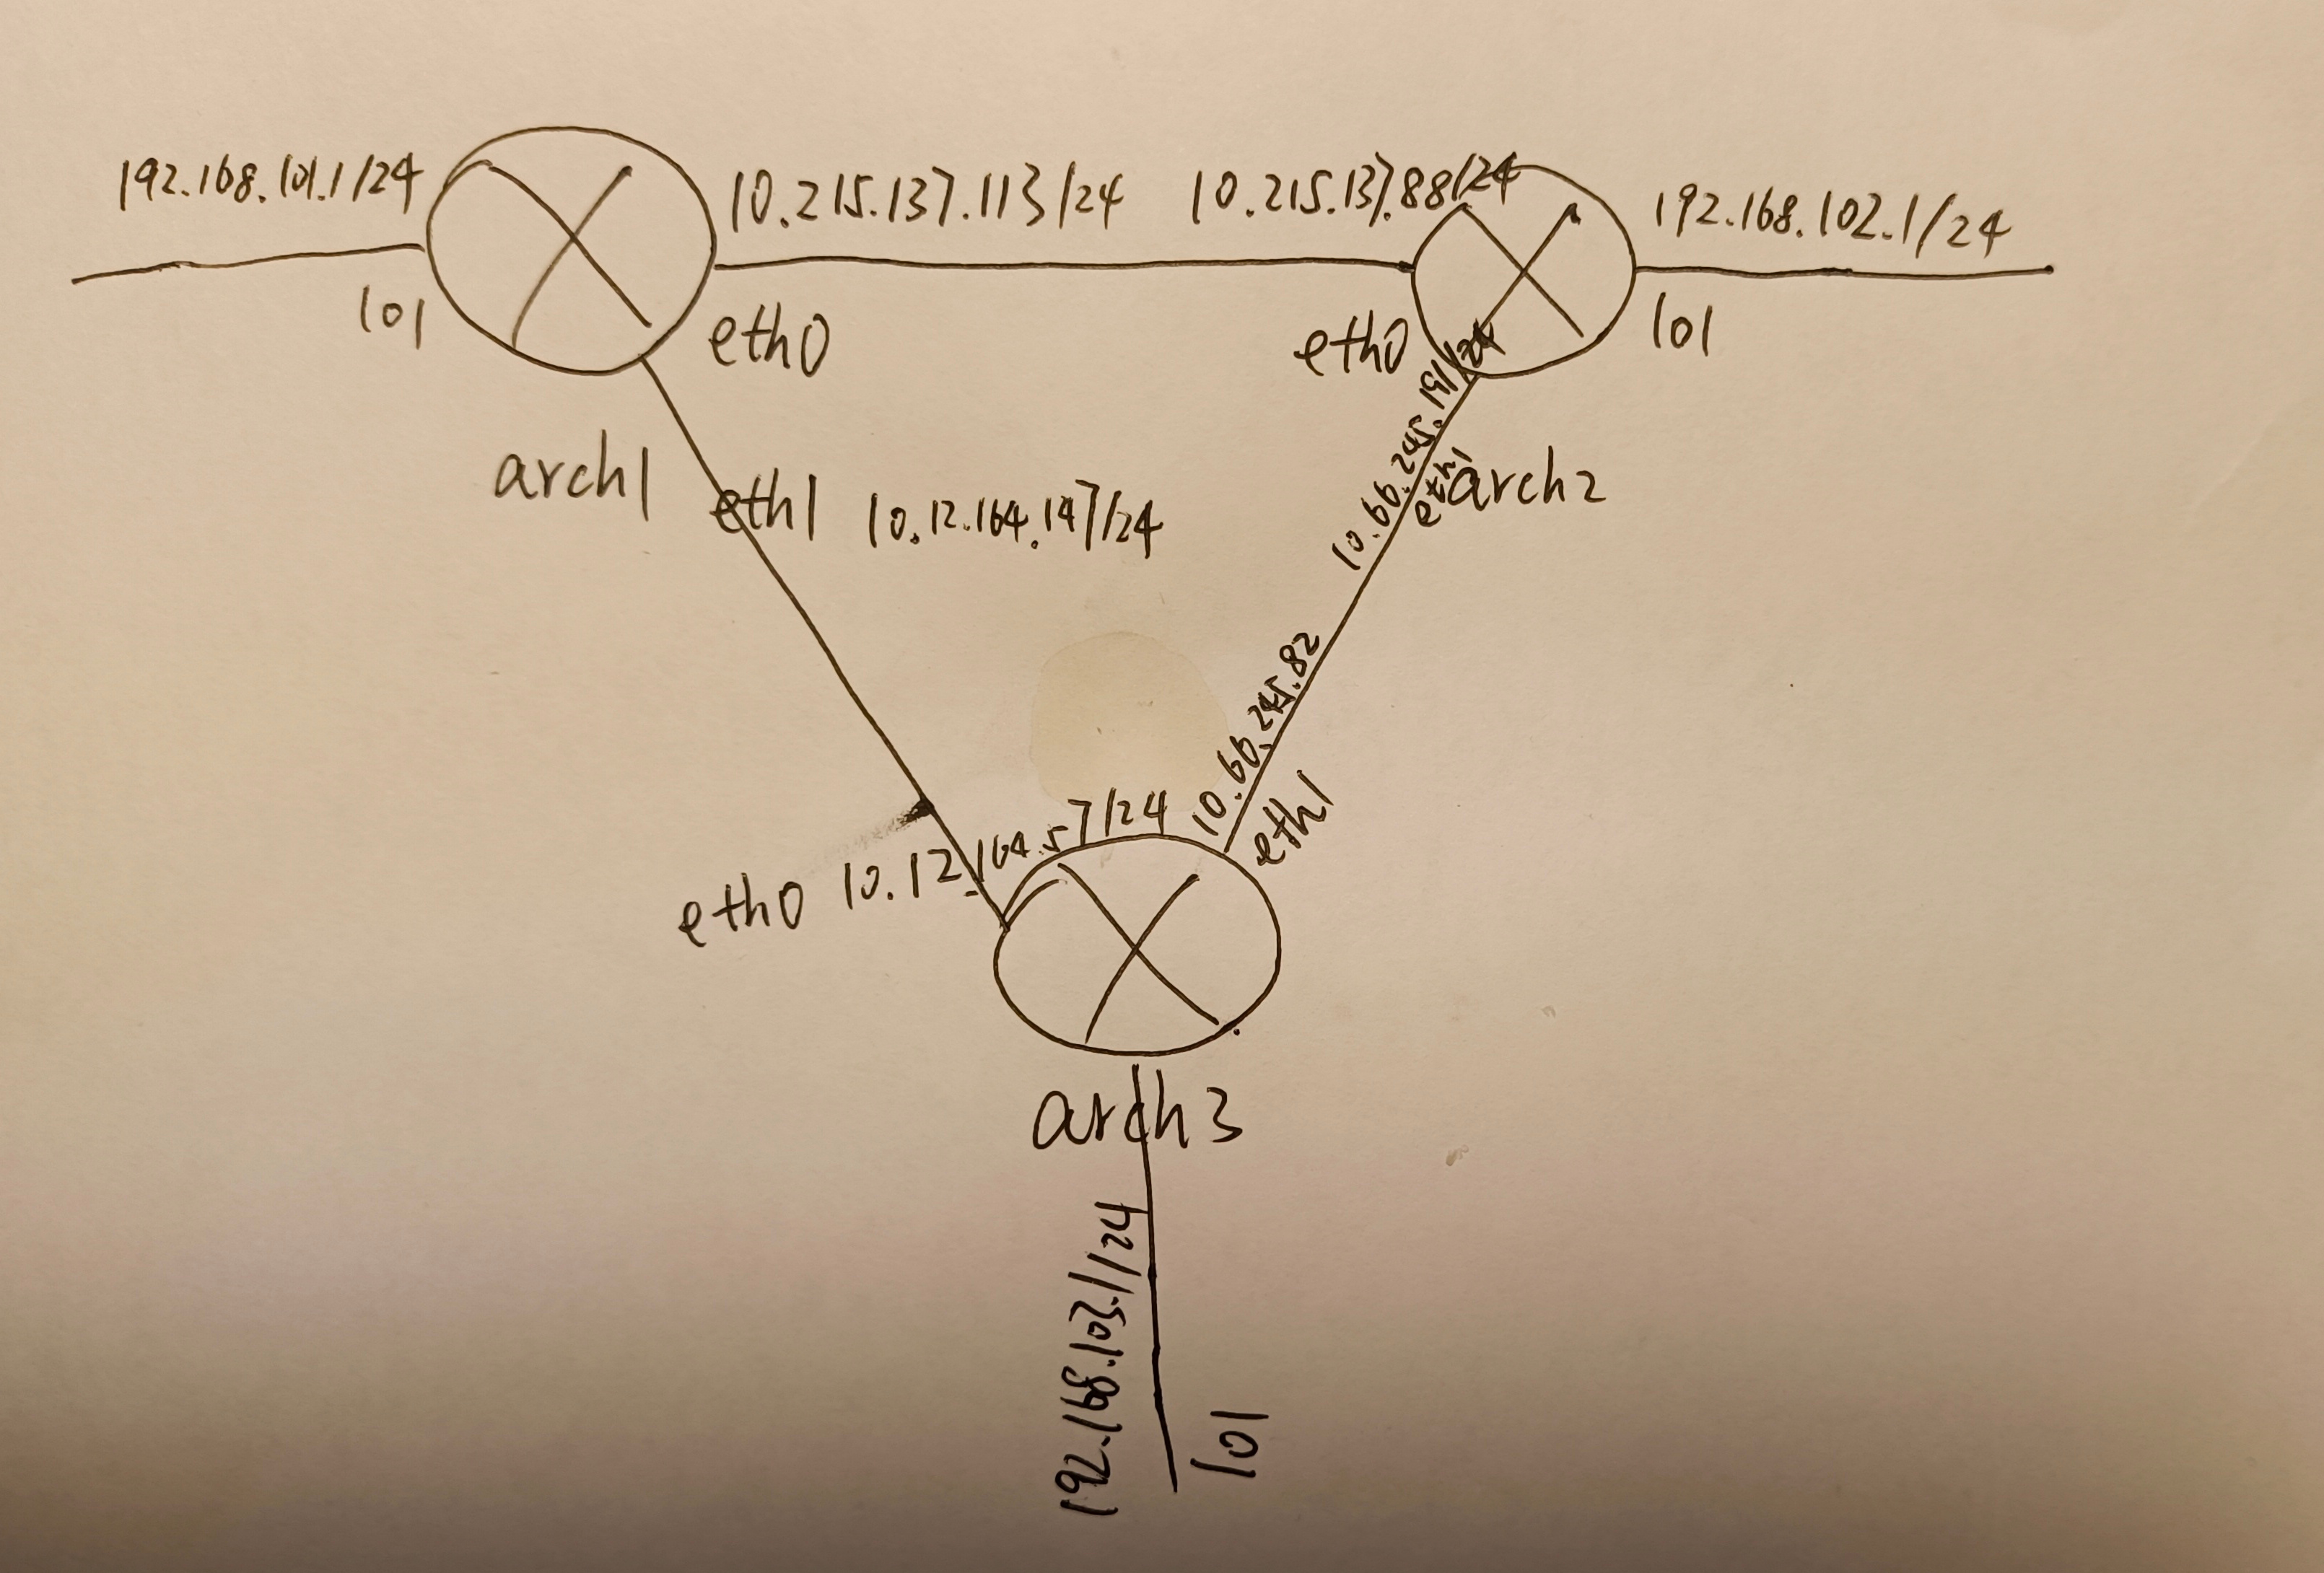 192.168.101.1/24
10.215.137.113/24
10.215.137.88/24
192.168.102.1/24
lo1
eth0
eth0
lo1
arch1
eth1
10.12.164.147/24
eth1
arch2
10.66.245.82
eth0
10.12.164.57/24
eth1
arch3
192.168.103.1/24
lo1